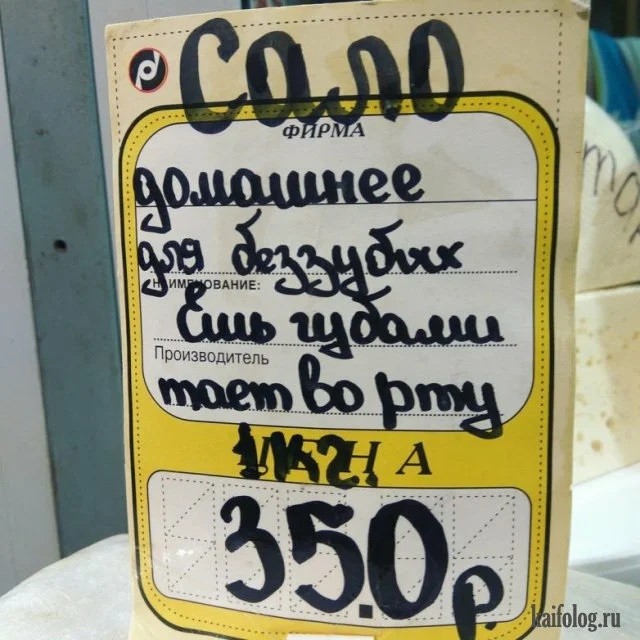 Сало
ФИРМА
домашнее
для беззубых
НАИМЕНОВАНИЕ:
Ешь губами
Производитель
тает во рту
ЦЕНА
1кг.
350р
kaifolog.ru